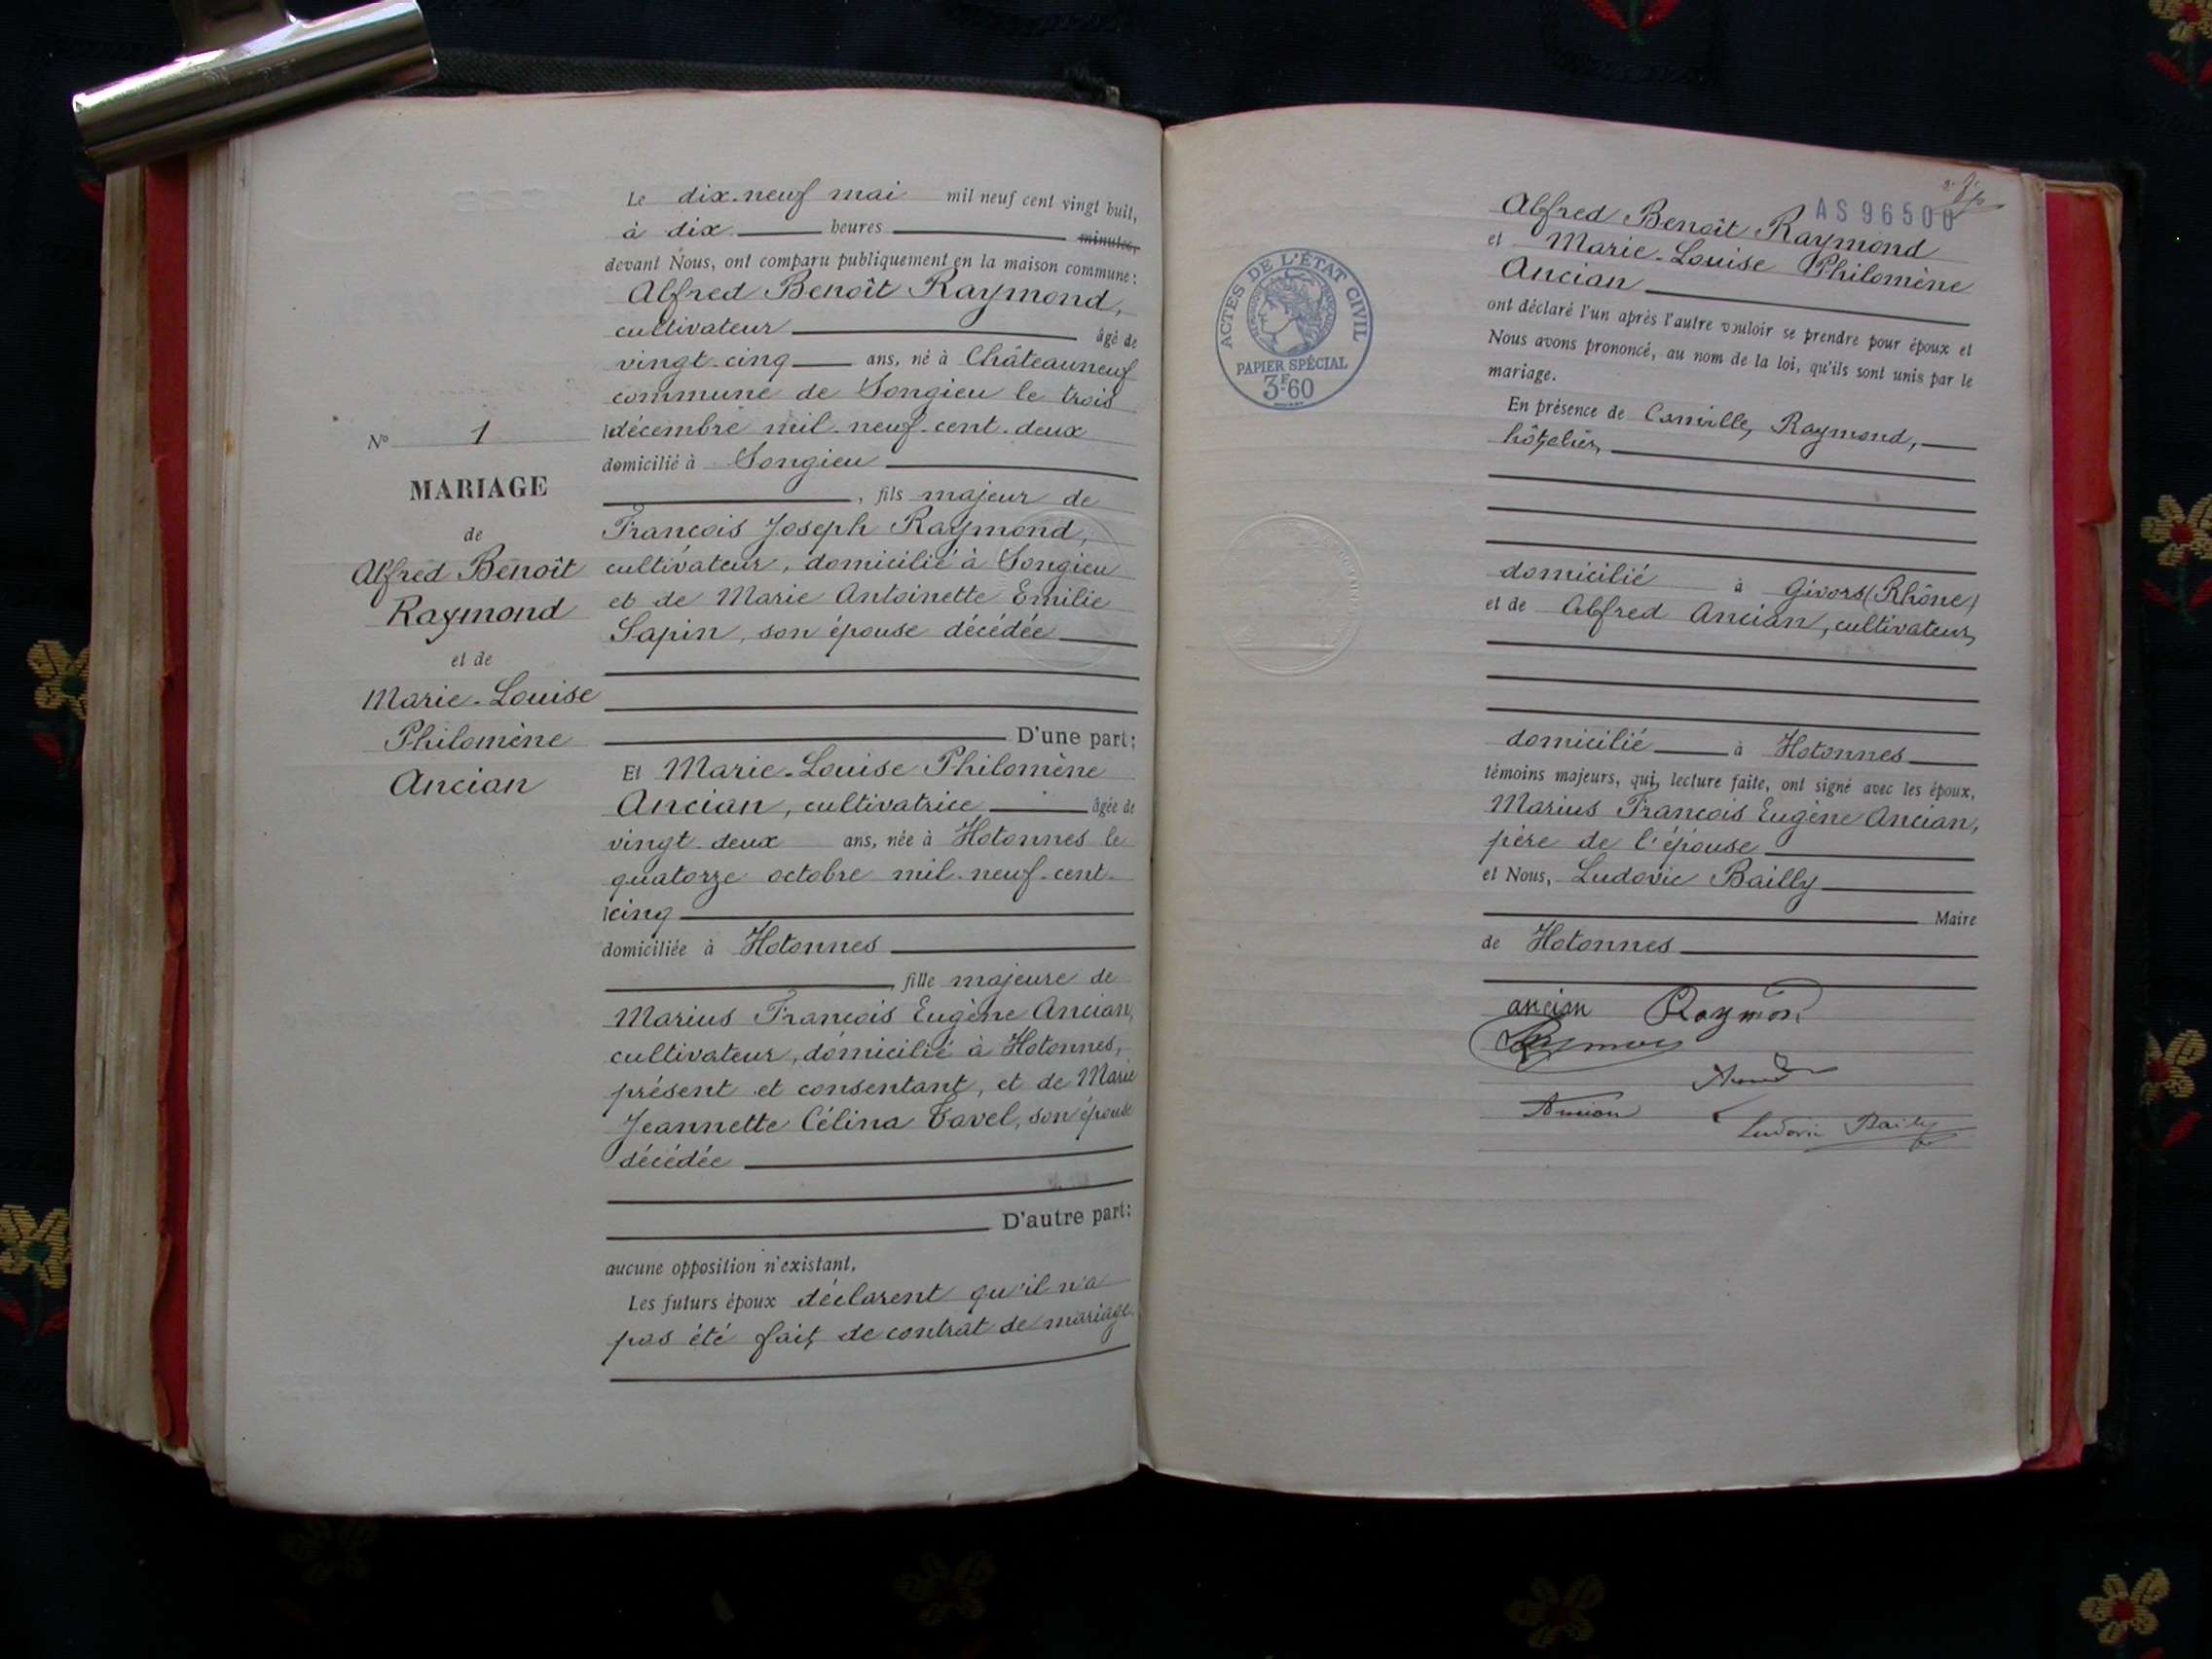 Nº 1
MARIAGE
de
Alfred Benoît
Raymond
et de
Marie-Louise
Philomène
Ancian
Le dix-neuf mai mil neuf cent vingt huit,
à dix heures minutes,
devant Nous, ont comparu publiquement en la maison commune:
Alfred Benoît Raymond,
cultivateur âgé de
vingt-cinq ans, né à Châteauneuf
commune de Songieu le trois
décembre mil-neuf-cent-deux
domicilié à Songieu
, fils majeur de
François Joseph Raymond,
cultivateur, domicilié à Songieu
et de Marie Antoinette Emilie
Sapin, son épouse décédée
D'une part;
Et Marie-Louise Philomène
Ancian, cultivatrice âgée de
vingt-deux ans, née à Hotonnes le
quatorze octobre mil-neuf-cent-
cinq
domiciliée à Hotonnes
, fille majeure de
Marius François Eugène Ancian,
cultivateur, domicilié à Hotonnes,
présent et consentant, et de Marie
Jeannette Célina Tavel, son épouse
décédée
D'autre part;
aucune opposition n'existant,
Les futurs époux déclarent qu'il n'a
pas été fait de contrat de mariage.
ACTES DE L'ÉTAT CIVIL
PAPIER SPÉCIAL
3F.60
AS 96500
Alfred Benoît Raymond
et Marie-Louise Philomène
Ancian
ont déclaré l'un après l'autre vouloir se prendre pour époux et
Nous avons prononcé, au nom de la loi, qu'ils sont unis par le
mariage.
En présence de Camille, Raymond,
hôtelier,
domicilié à Givors (Rhône)
et de Alfred Ancian, cultivateur,
domicilié à Hotonnes
témoins majeurs, qui, lecture faite, ont signé avec les époux,
Marius François Eugène Ancian,
père de l'épouse
et Nous, Ludovic Bailly
Maire
de Hotonnes
ancian Raymond
Raymond
Ancian
Ludovic Bailly